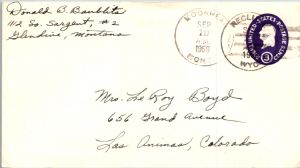 Donald B. Baublits
112 So. Sargent, #2
Glendive, Montana
SEP
1969
MONT
RECLA
WYO
UNITED STATES POSTAGE
3
CENTS
Mrs. Le Roy Boyd
656 Grand Avenue
Las Animas, Colorado